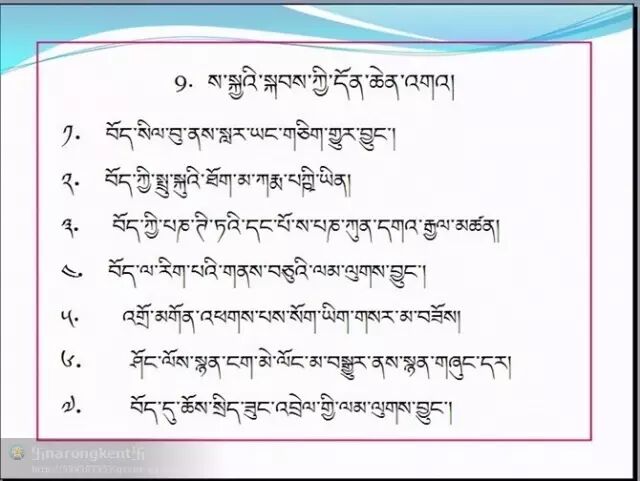 9. ས་སྐྱའི་སྐབས་ཀྱི་དོན་ཆེན་འགའ།
༡. བོད་སིལ་བུ་ནས་སླར་ཡང་གཅིག་གྱུར་བྱུང་།
༢. བོད་ཀྱི་སྤྲུ་སྐུའི་ཐོག་མ་ཀརྨ་པཀྵི་ཡིན།
༣. བོད་ཀྱི་པཎ་ཊི་ཏའི་དང་པོ་ས་པཎ་ཀུན་དགའ་རྒྱལ་མཚན།
༤. བོད་ལ་རིག་པའི་གནས་བཅུའི་ལམ་ལུགས་བྱུང་།
༥. འགྲོ་མགོན་འཕགས་པས་སོག་ཡིག་གསར་མ་བཟོས།
༦. ཤོང་ལོས་སྙན་ངག་མེ་ལོང་མ་བསྒྱུར་ནས་སྙན་གཞུང་དར།
༧. བོད་དུ་ཆོས་སྲིད་ཟུང་འབྲེལ་གྱི་ལམ་ལུགས་བྱུང་།
卐narongkent卐